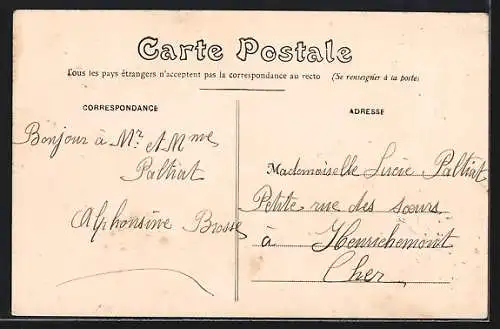 Carte Postale
Tous les pays étrangers n'acceptent pas la correspondance au recto (Se renseigner à la poste)
CORRESPONDANCE
ADRESSE
Bonjour à Mr. et Mme
Paltrat
Alphonsine Brosse
Mademoiselle Lucie Paltrat
Petite rue des sœurs
à Henrichemont
Cher